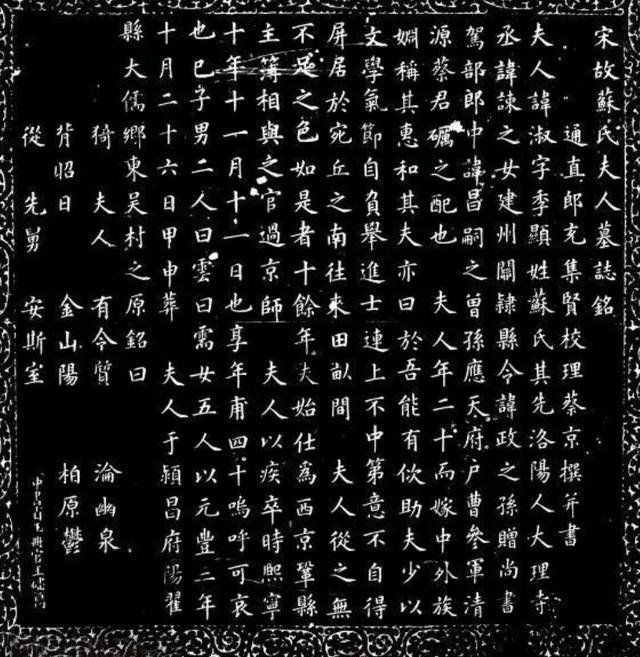 宋故蘇氏夫人墓誌銘
通直郎充集賢校理蔡京撰并書
夫人諱淑字季顯姓蘇氏其先洛陽人大理寺
丞諱諫之女建州關隸縣令諱政之孫贈尚書
駕部郎中諱昌嗣之曾孫應天府戶曹參軍清
源蔡君礪之配也　夫人年二十而嫁中外族
姻稱其惠和其夫亦曰於吾能有佽助夫少以
文學氣節自負舉進士連上不中第意不自得
屏居於宛丘之南往來田畝間　夫人從之無
不足之色如是者十餘年夫始仕為西京鞏縣
主簿相與之官過京師　夫人以疾卒時熙寧
十年十一月十一日也享年甫四十嗚呼可哀
也已子男二人曰雲曰需女五人以元豐二年
十月二十六日甲申葬　夫人于潁昌府陽翟
縣大儒鄉東吳村之原銘曰
猗夫人　有令質　淪幽泉
背昭日　金山陽　柏原鬱
從先舅　安斯室